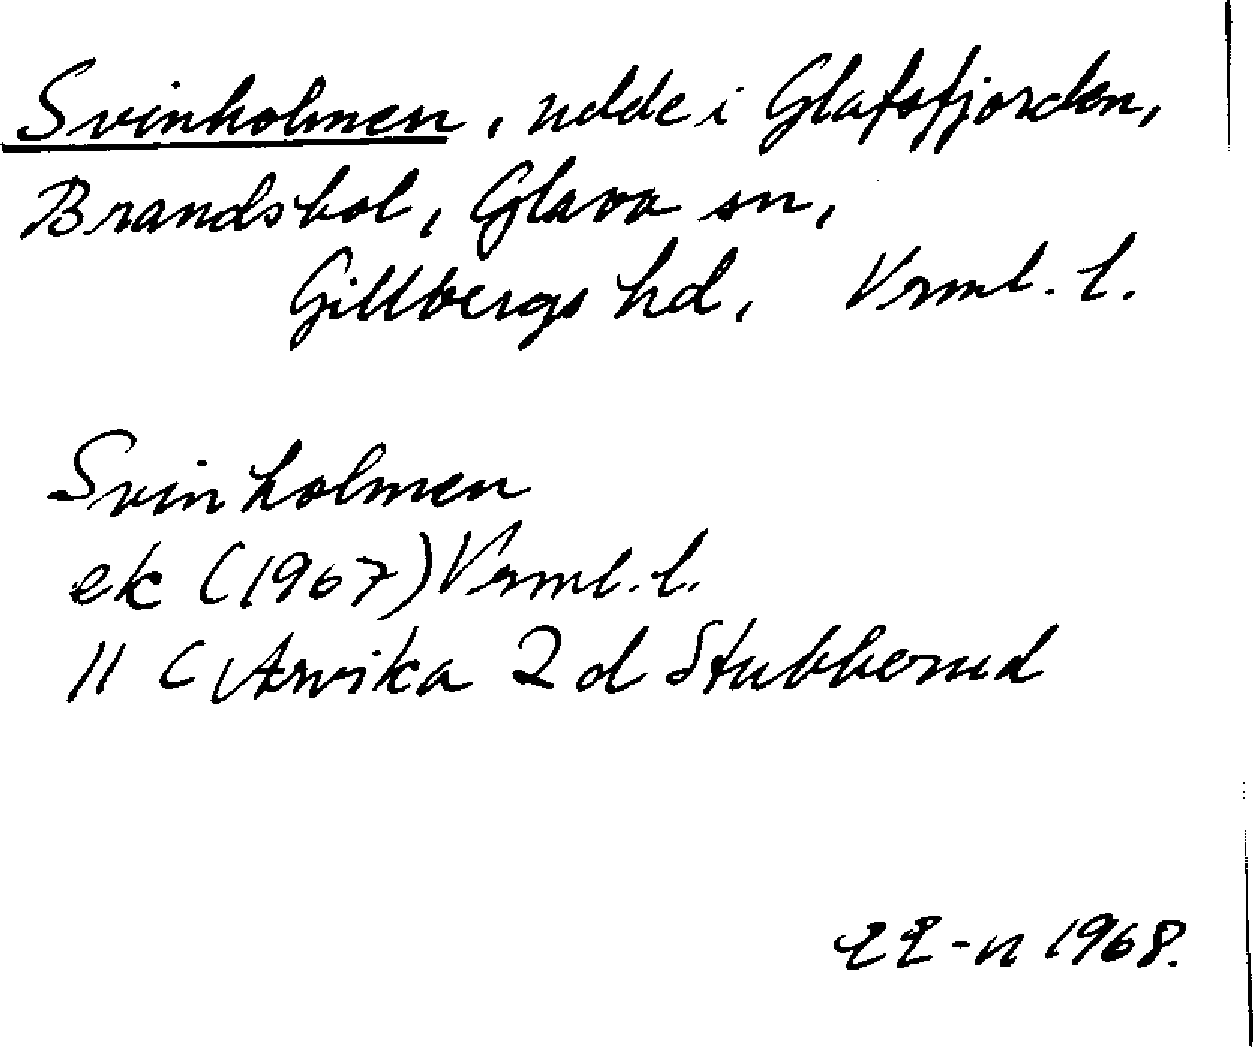 Svinholmen, udde i Glafsfjorden,
Brandsbol, Glava sn,
Gillbergs hd, Verml. l.
Svinholmen
ek (1967) Verml. l.
11 C Arvika 2 d Stubberud
1968.